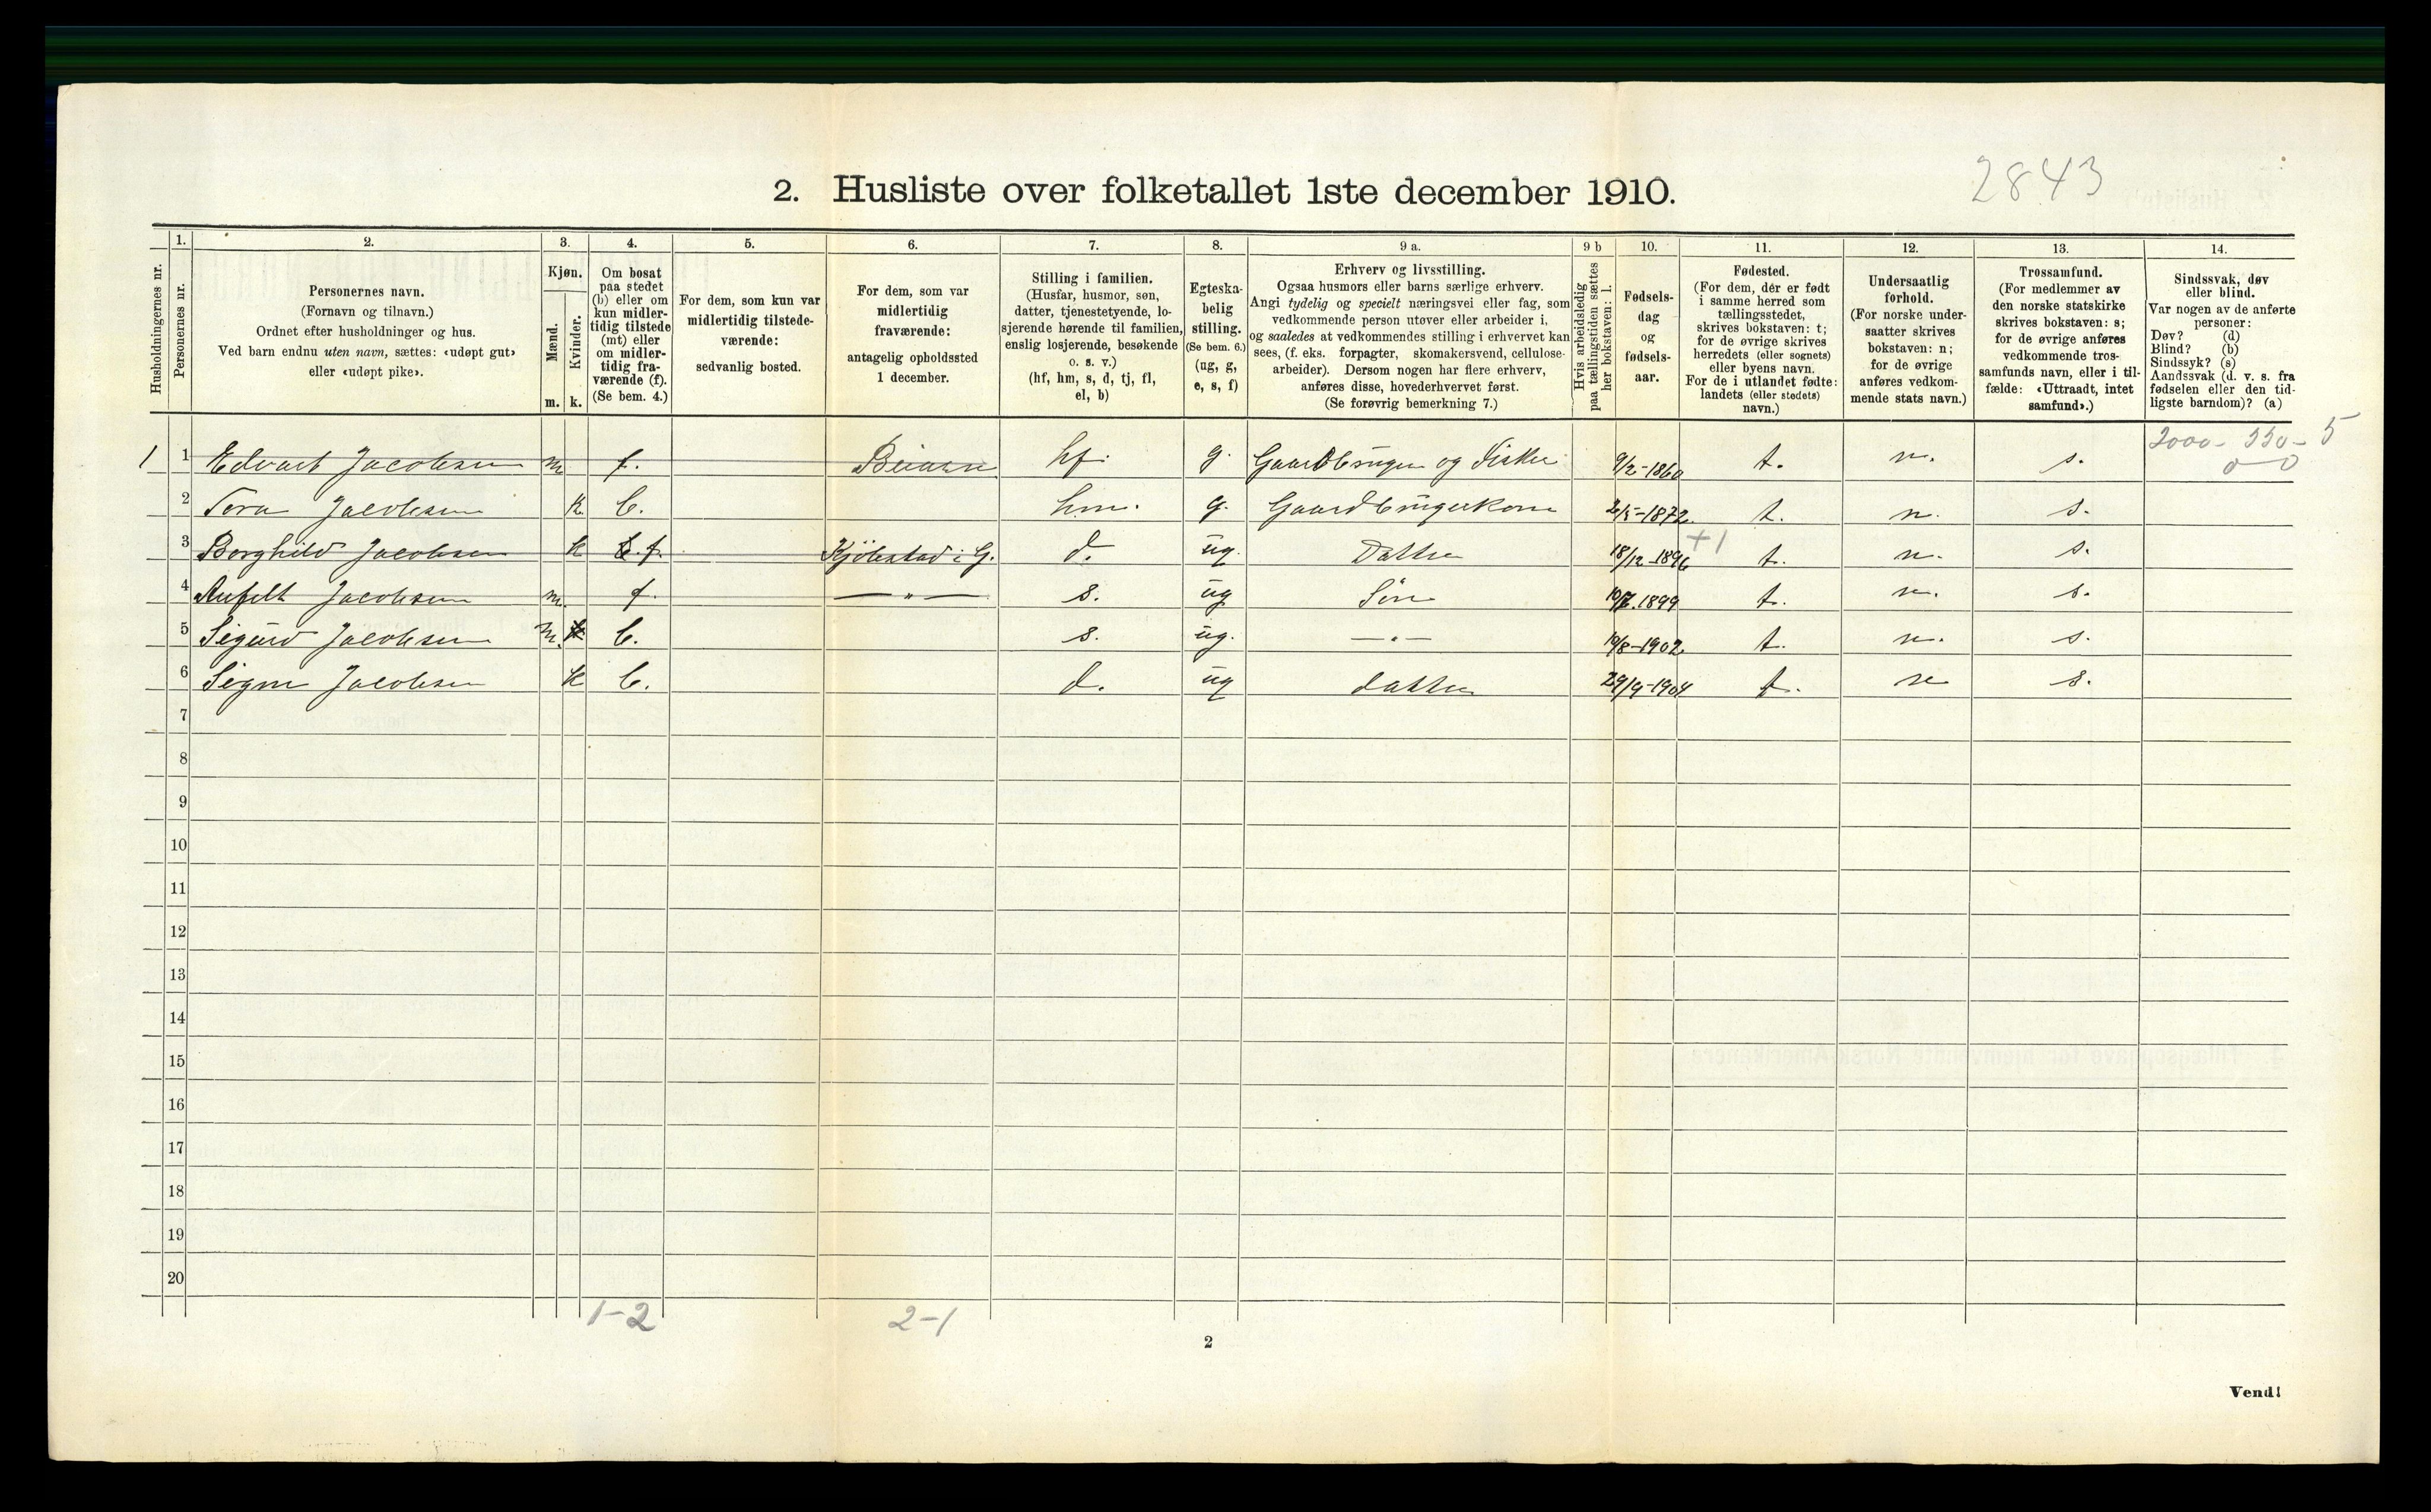 2843
2. Husliste over folketallet 1ste december 1910.
Husholdningernes nr.
1.
Personernes nr.
2.
Personernes navn.
(Fornavn og tilnavn.)
Ordnet efter husholdninger og hus.
Ved barn endnu uten navn, sættes: «udøpt gut»
eller «udøpt pike».
3.
Kjøn.
Mænd.
Kvinder.
m. k.
4.
Om bosat
paa stedet
(b) eller om
kun midler-
tidig tilstede
(mt) eller
om midler-
tidig fra-
værende (f).
(Se bem. 4.)
5.
For dem, som kun var
midlertidig tilstede-
værende:
sedvanlig bosted.
6.
For dem, som var
midlertidig
fraværende:
antagelig opholdssted
1 december.
7.
Stilling i familien.
(Husfar, husmor, søn,
datter, tjenestetyende, lo-
sjerende hørende til familien,
enslig losjerende, besøkende
o. s. v.)
(hf, hm, s, d, tj, fl,
el, b)
8.
Egteska-
belig
stilling.
(Se bem. 6.)
(ug, g,
e, s, f)
9 a.
Erhverv og livsstilling.
Ogsaa husmors eller barns særlige erhverv.
Angi tydelig og specielt næringsvei eller fag, som
vedkommende person utøver eller arbeider i,
og saaledes at vedkommendes stilling i erhvervet kan
sees, (f. eks. forpagter, skomakersvend, cellulose-
arbeider). Dersom nogen har flere erhverv,
anføres disse, hovederhvervet først.
(Se forøvrig bemerkning 7.)
9 b
Hvis arbeidsledig
paa tællingstiden sættes
her bokstaven: l.
10.
Fødsels-
dag
og
fødsels-
aar.
11.
Fødested.
(For dem, der er født
i samme herred som
tællingsstedet,
skrives bokstaven: t;
for de øvrige skrives
herredets (eller sognets)
eller byens navn.
For de i utlandet fødte:
landets (eller stedets)
navn.)
12.
Undersaatlig
forhold.
(For norske under-
saatter skrives
bokstaven: n;
for de øvrige
anføres vedkom-
mende stats navn.)
13.
Trossamfund.
(For medlemmer av
den norske statskirke
skrives bokstaven: s;
for de øvrige anføres
vedkommende tros-
samfunds navn, eller i til-
fælde: «Uttraadt, intet
samfund».)
14.
Sindssvak, døv
eller blind.
Var nogen av de anførte
personer:
Døv? (d)
Blind? (b)
Sindssyk? (s)
Aandssvak (d. v. s. fra
fødselen eller den tid-
ligste barndom)? (a)
2000- 550- 5
0-0
1 1 Edvart Jacobsen m f. hf. g. Gaardbruger og Fisker 9/2-1860 t. n. s.
2 Tora Jacobsen k b. hm. g. Gaardbrugerkone 2/5-1872. t. n. s.
+1
3 Borghild Jacobsen k f. Kjöbstad i G. d. ug. Datter 18/12-1896 t. n. s.
4 Jacobsen m. f. — " — s. ug Sön 1899 t. n. s.
5 Sigurd Jacobsen m. b. s. ug. — " — 19/8-1902. t. n. s.
6 Signe Jacobsen k b. d. ug datter 29/9-1904 t. n s.
7
8
9
10
11
12
13
14
15
16
17
18
19
20
1-2 2-1
2
Vend!